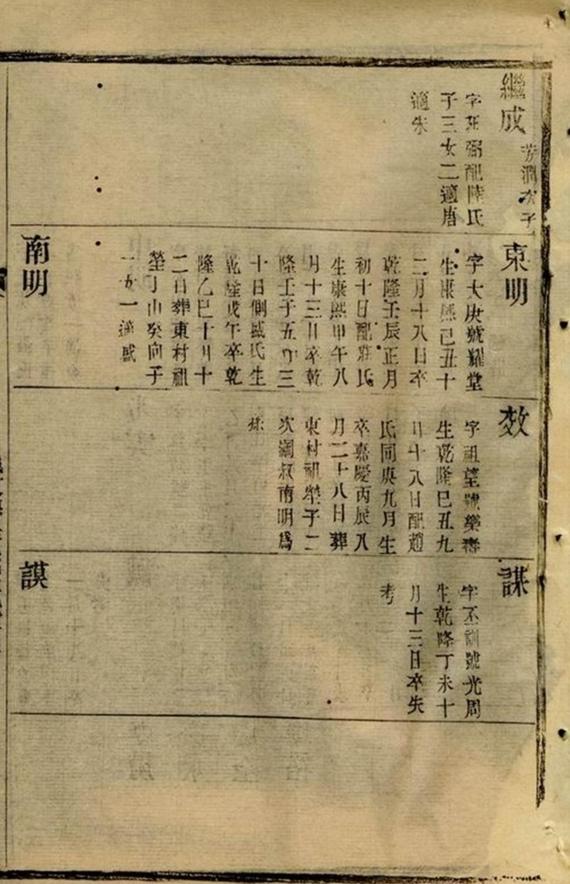 繼成
次子
字 配陸氏
子三女二適唐
適朱
東明
字大庚號耀堂
生康熙己丑十
二月十八日卒
乾隆壬辰正月
初十日配莊氏
生康熙甲午八
月十三日卒乾
隆壬子五月三
十日側戚氏生
乾隆戊午卒乾
隆乙巳十月十
二日葬東村祖
塋丁山癸向子
一女一適戚
南明
效
字祖望號樂壽
生乾隆己丑九
月十八日配趙
氏同庚九月生
卒嘉慶丙辰八
月二十八日葬
東村祖塋子二
次嗣叔南明爲
孫
謀
字丕訓號光周
生乾隆丁未十
月十三日卒失
考
謨